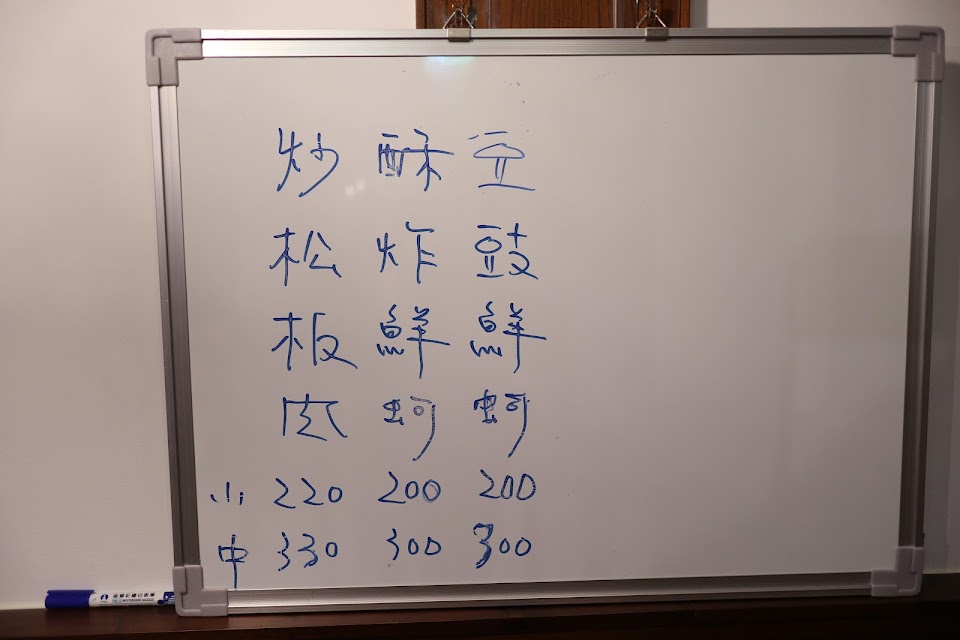 豆豉鮮蚵
酥炸鮮蚵
炒松板肉
小 220 200 200
中 330 300 300